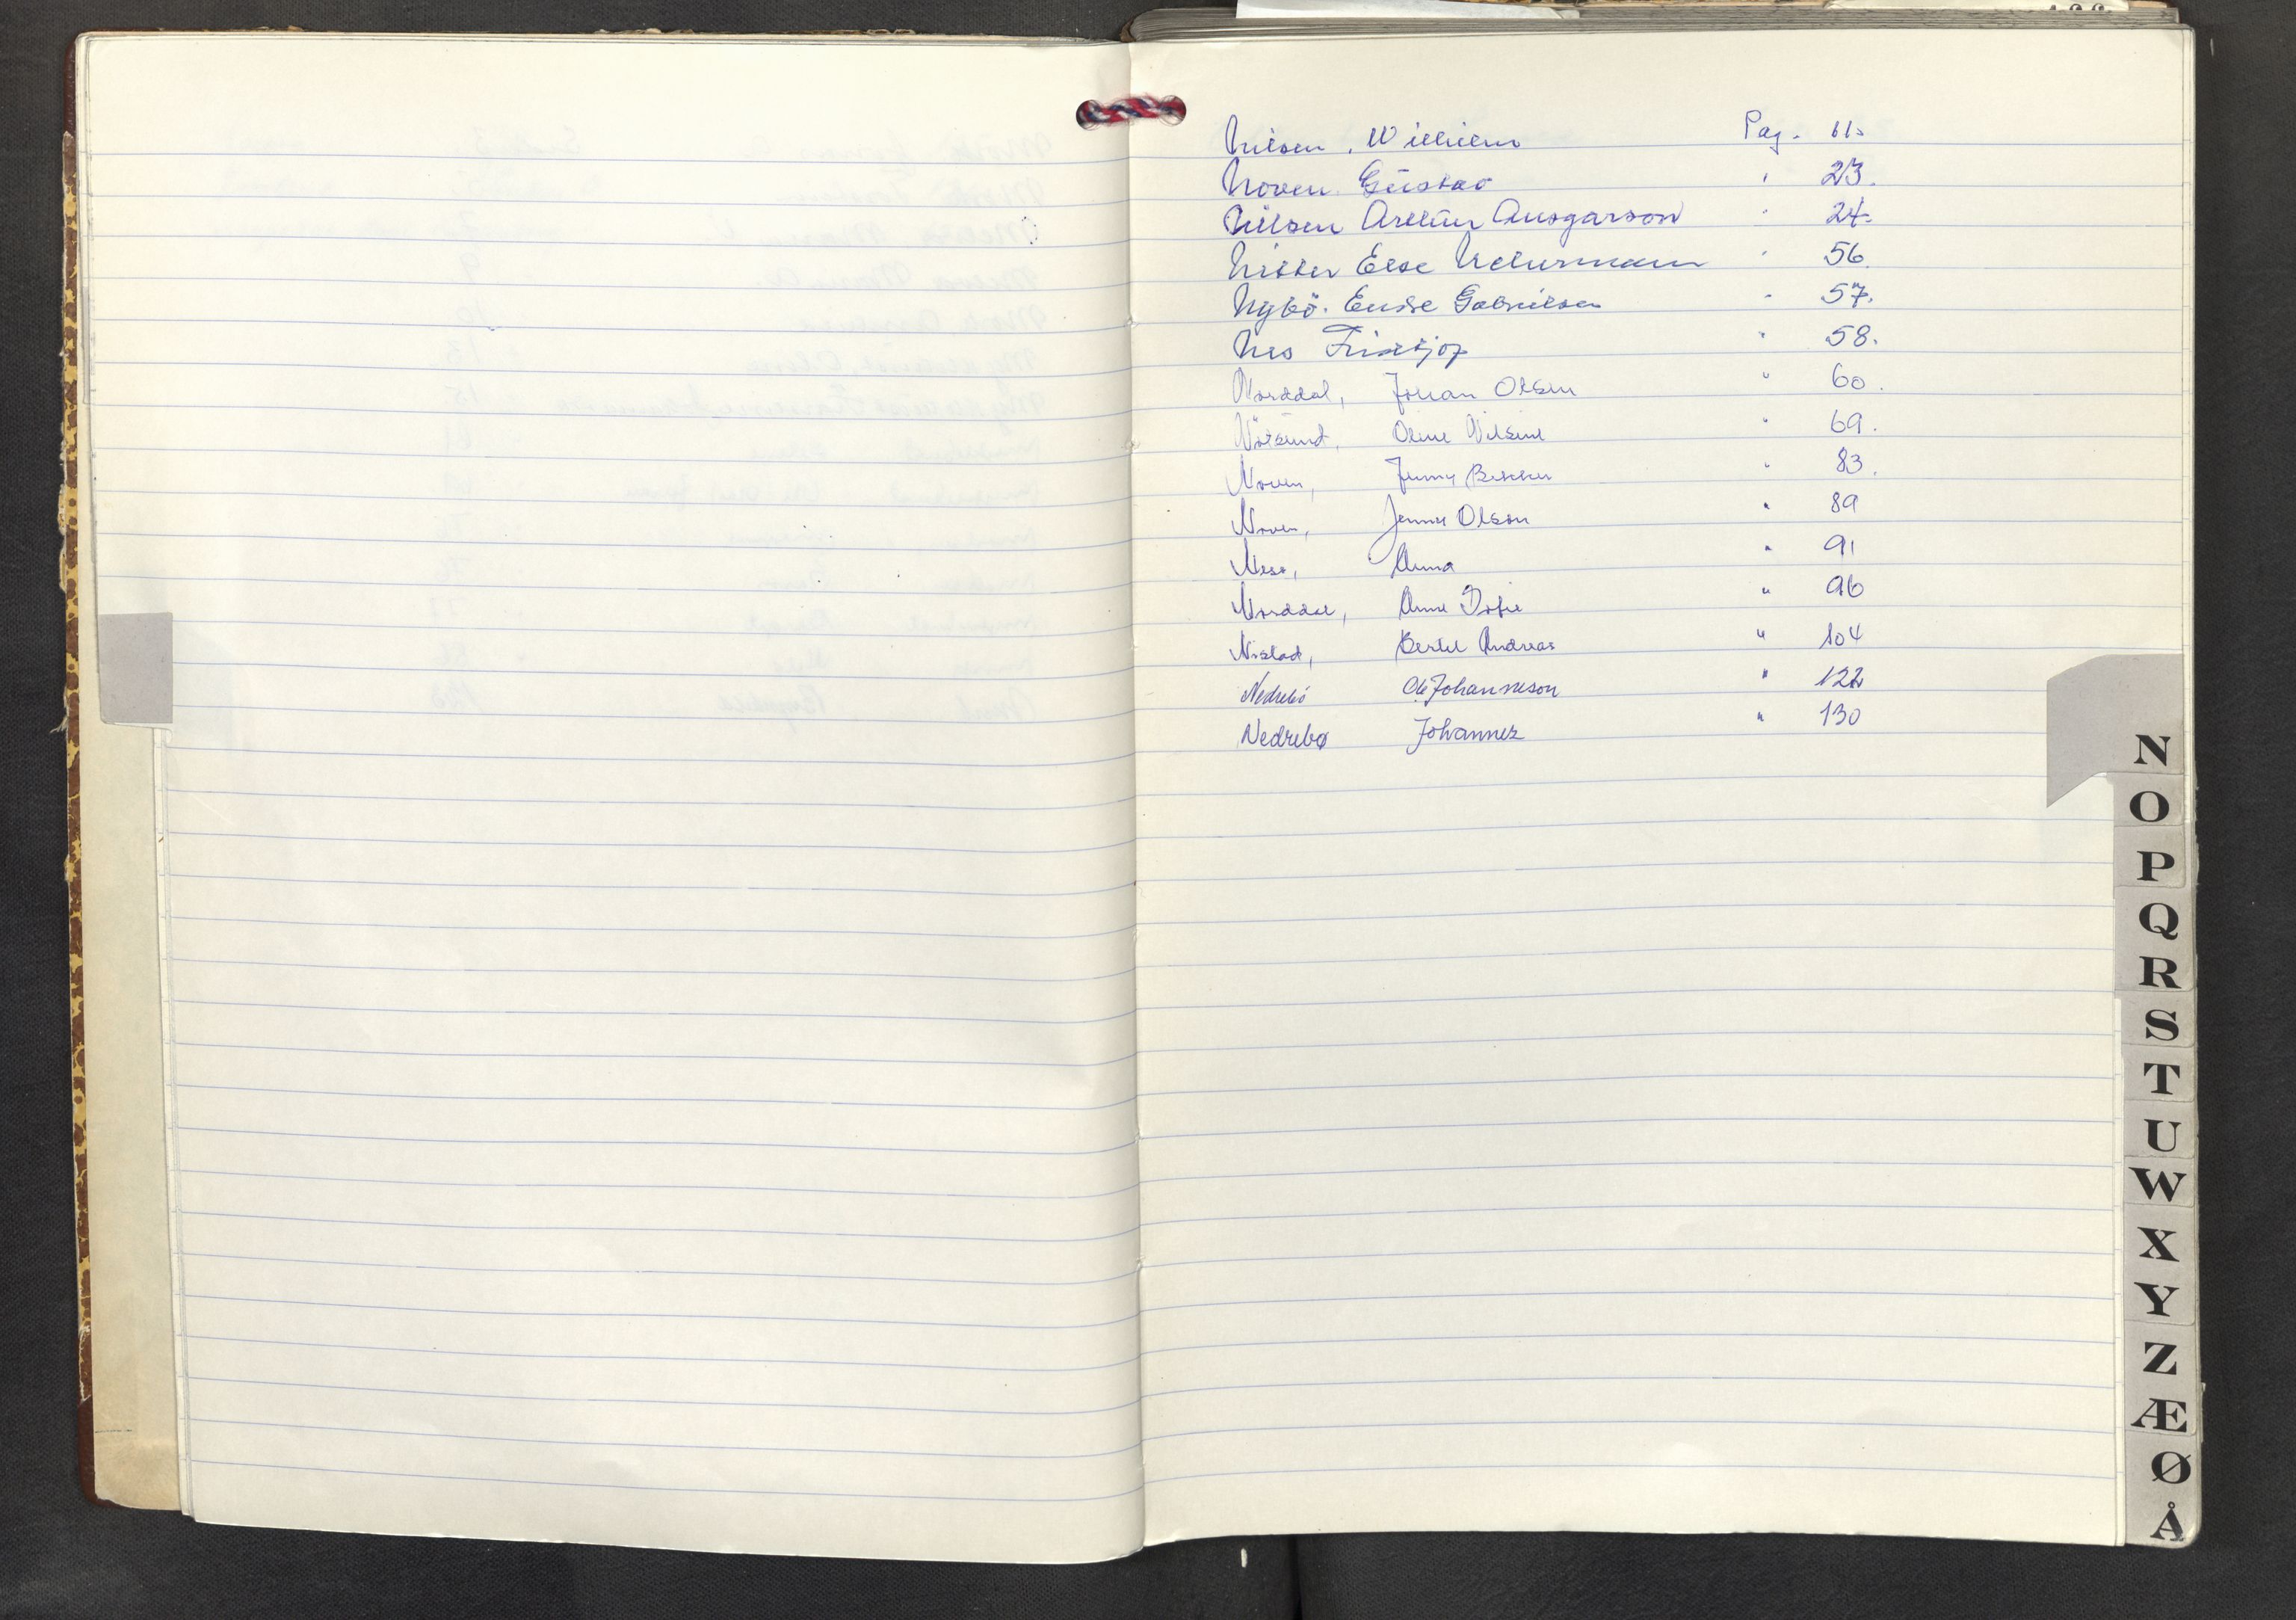 Nilsen, Wilhelm Pag. 11.
Noven Gustav " 23.
Nilsen Arthur Ansgarson " 24.
Else " 56.
Nybö. Endre Gabrielsen " 57.
Nes Fridtjof " 58.
Norddal, Johan Olsen " 60.
Oline Nilsine " 69.
Noven, Jenny " 83.
Noven, Jenny Olson " 89
Ness, Anna " 91
Norddal, Anne Sofie " 96
Nistad, Bertel Andreas " 104
Nedrebö Ole Johanneson " 122
Nedrebø Johannes " 130
N
O
P
Q
R
S
T
U
W
X
Y
Z
Æ
Ø
Å